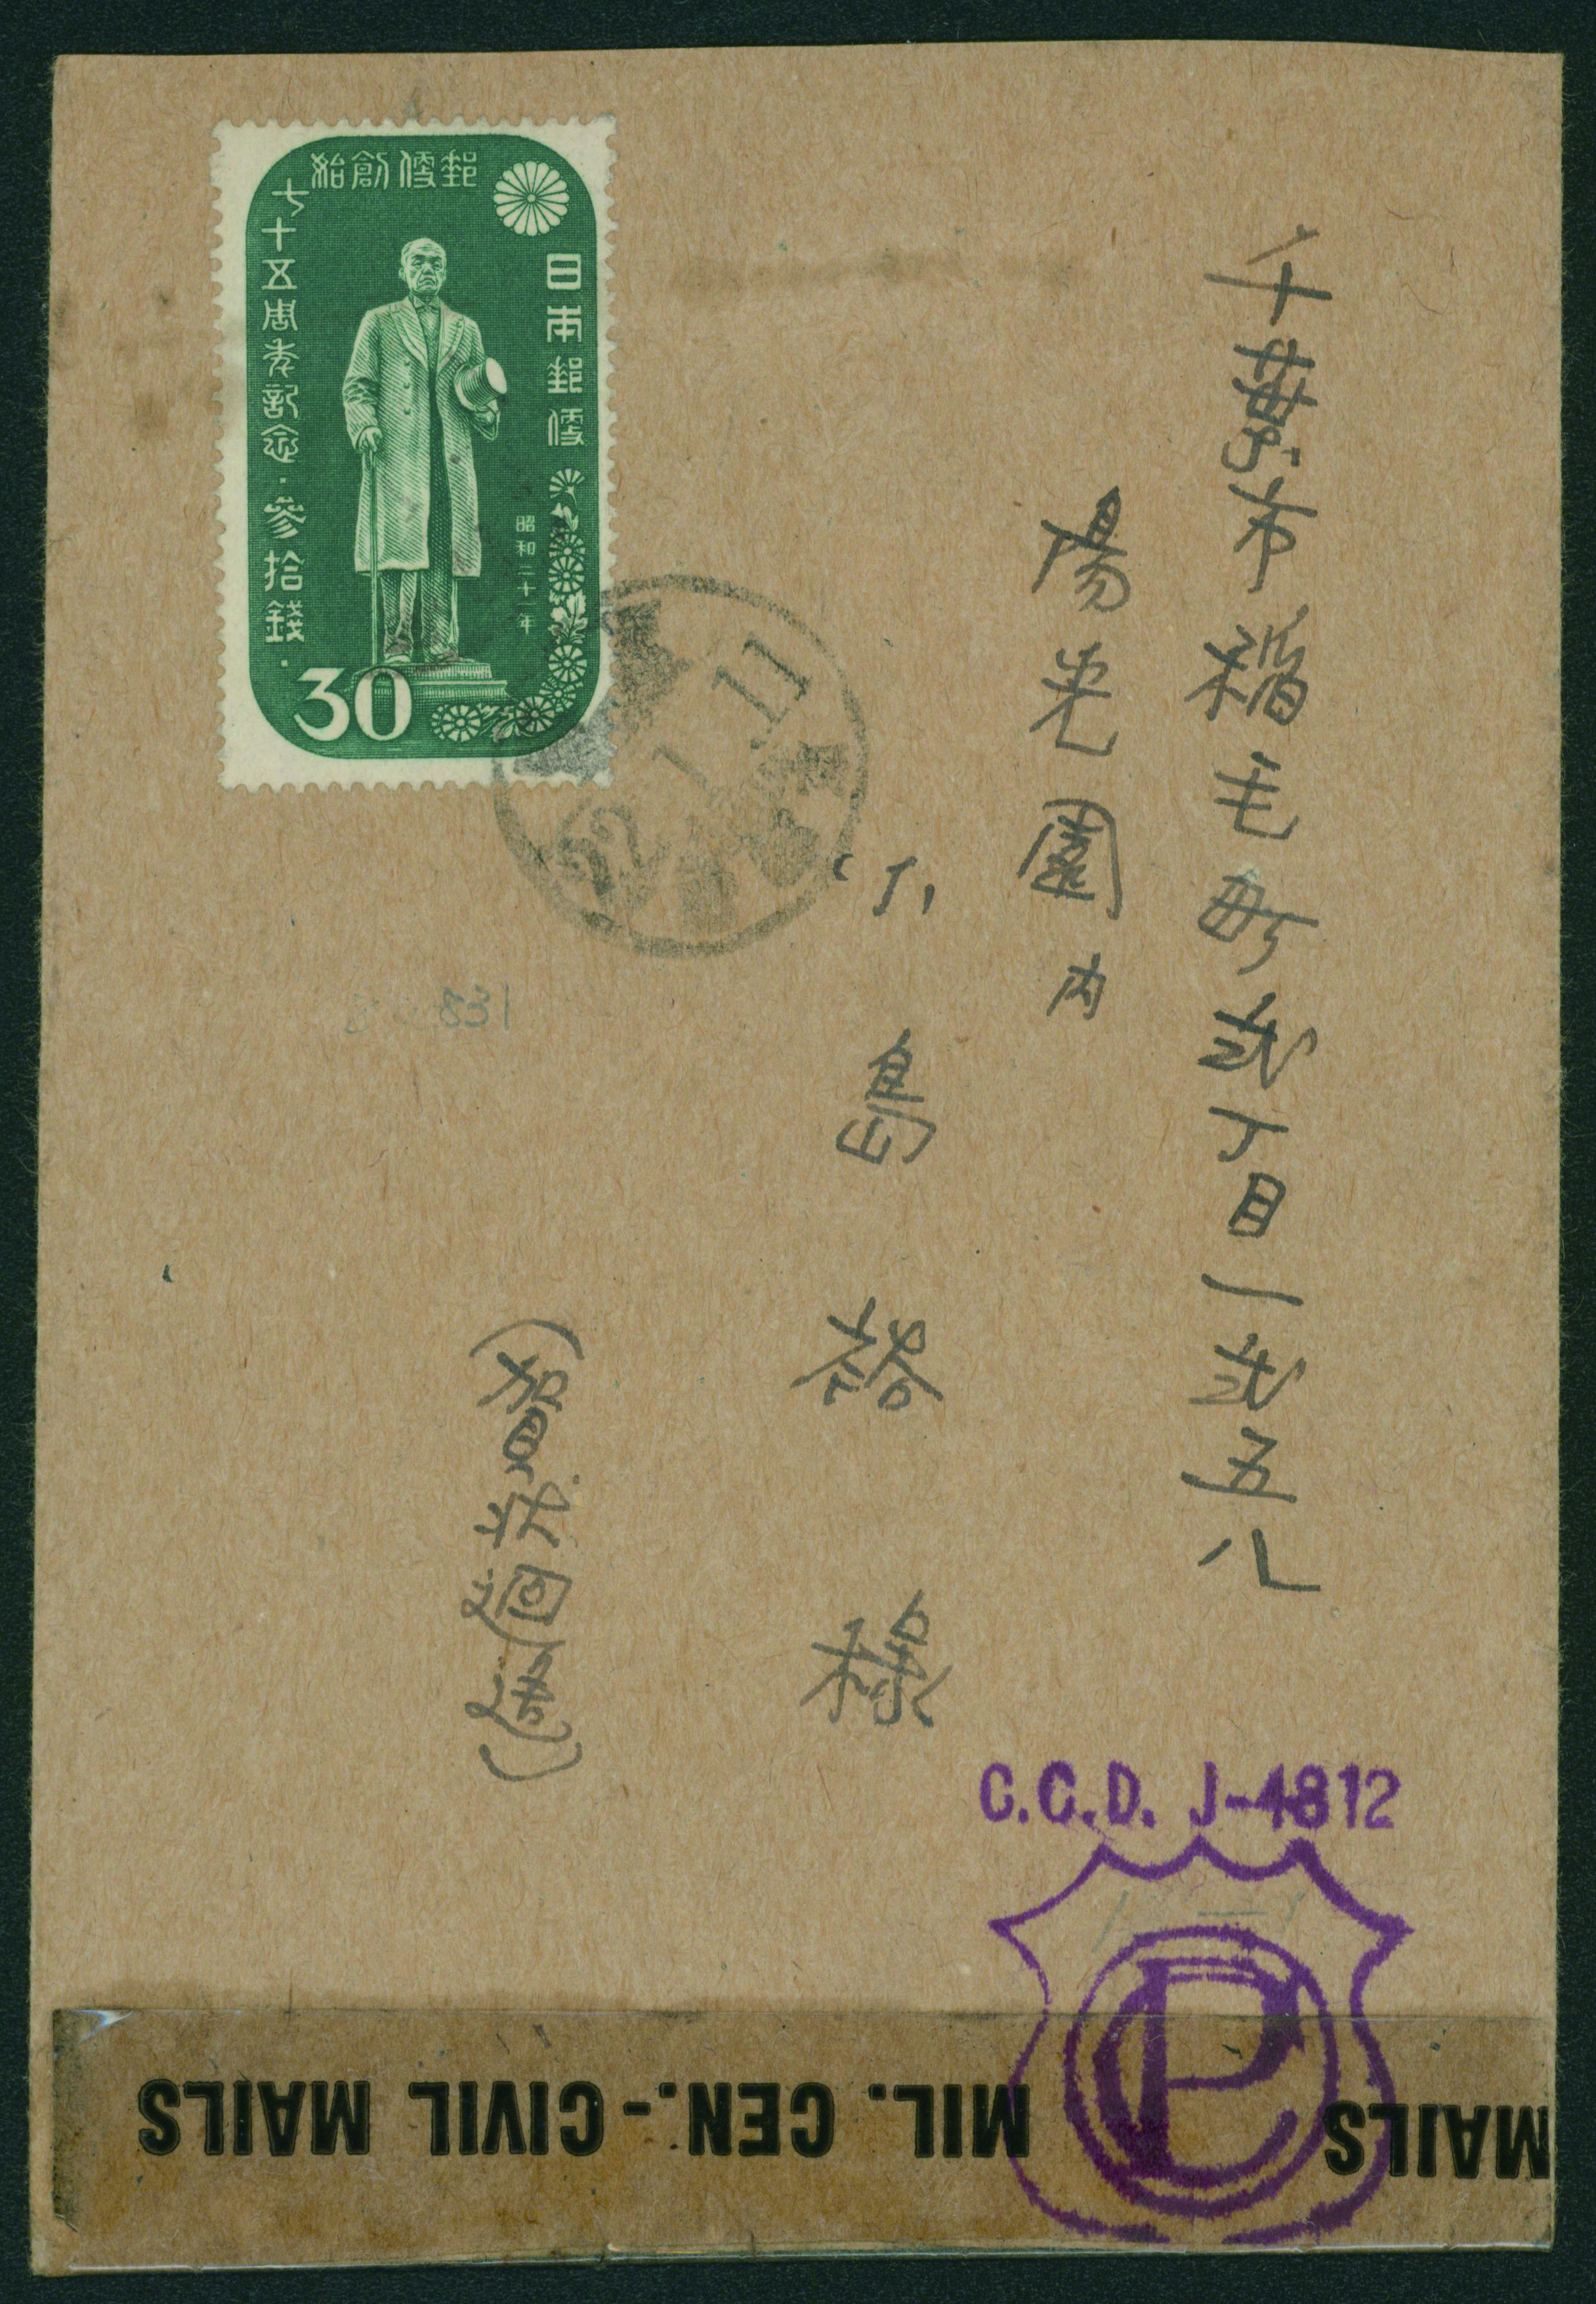 郵便創始
七十五周年記念・参拾錢・
日本郵便
昭和二十一年
30
22.1.11
千葉市稲毛町弐丁目一弐五八
陽光園内
小島 裕 様
(賀状廻送)
831
C.C.D. J-4812
CP
MIL. CEN. - CIVIL MAILS
MAILS